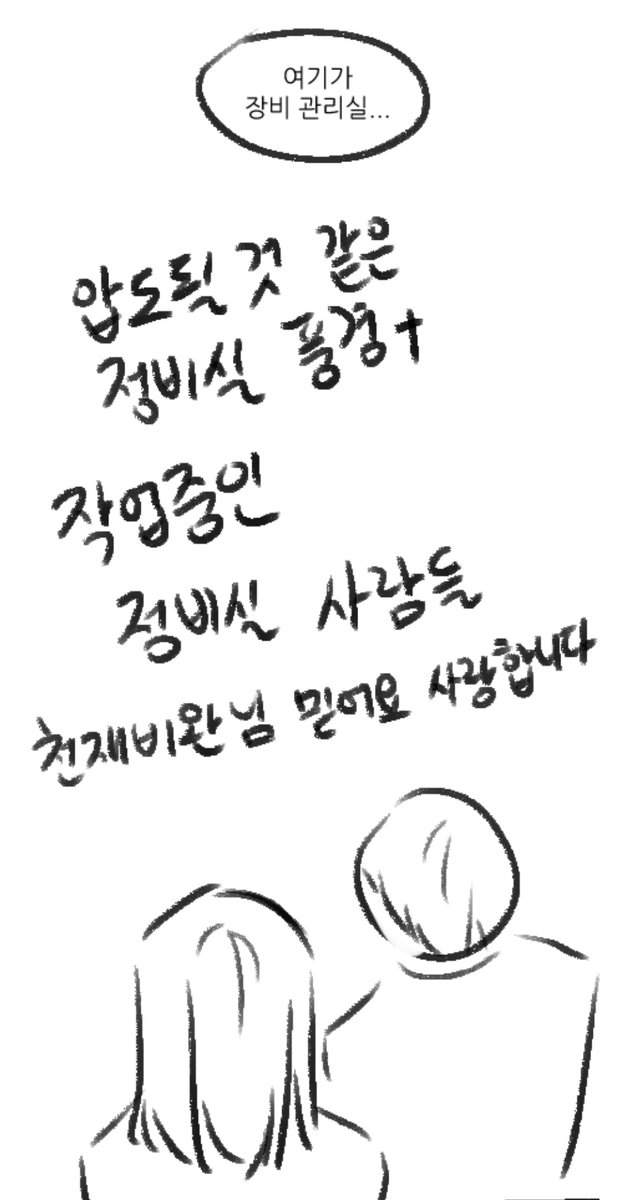 여기가
장비 관리실...
압도될 것 같은
정비실 풍경+
작업중인
정비실 사람들
천재비완님 믿어요 사랑합니다